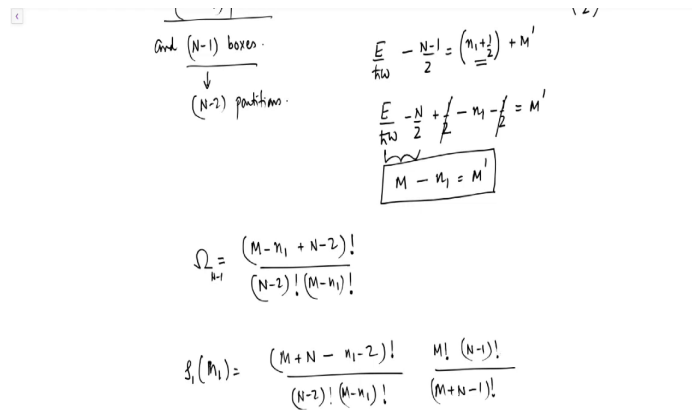 and (N-1) boxes.
↓
(N-2) partitions.
E/ħω - (N-1)/2 = (n₁+1/2) + M'
E/ħω - N/2 + 1/2 - n₁ - 1/2 = M'
M - n₁ = M'
Ω_{N-1} = (M-n₁ + N-2)! / (N-2)! (M-n₁)!
f₁(n₁) = (M+N - n₁-2)! / (N-2)! (M-n₁)! M! (N-1)! / (M+N-1)!